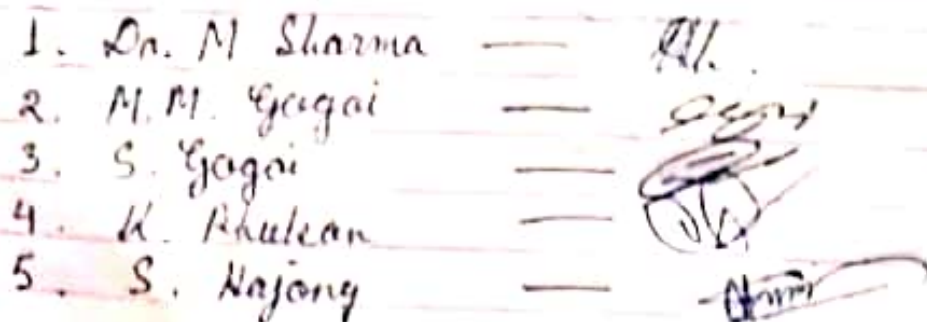 1. Dr. M Sharma —
2. M.M. Gogoi —
3. S. Gogoi —
4. K. Phukan —
5. S. Hajong —